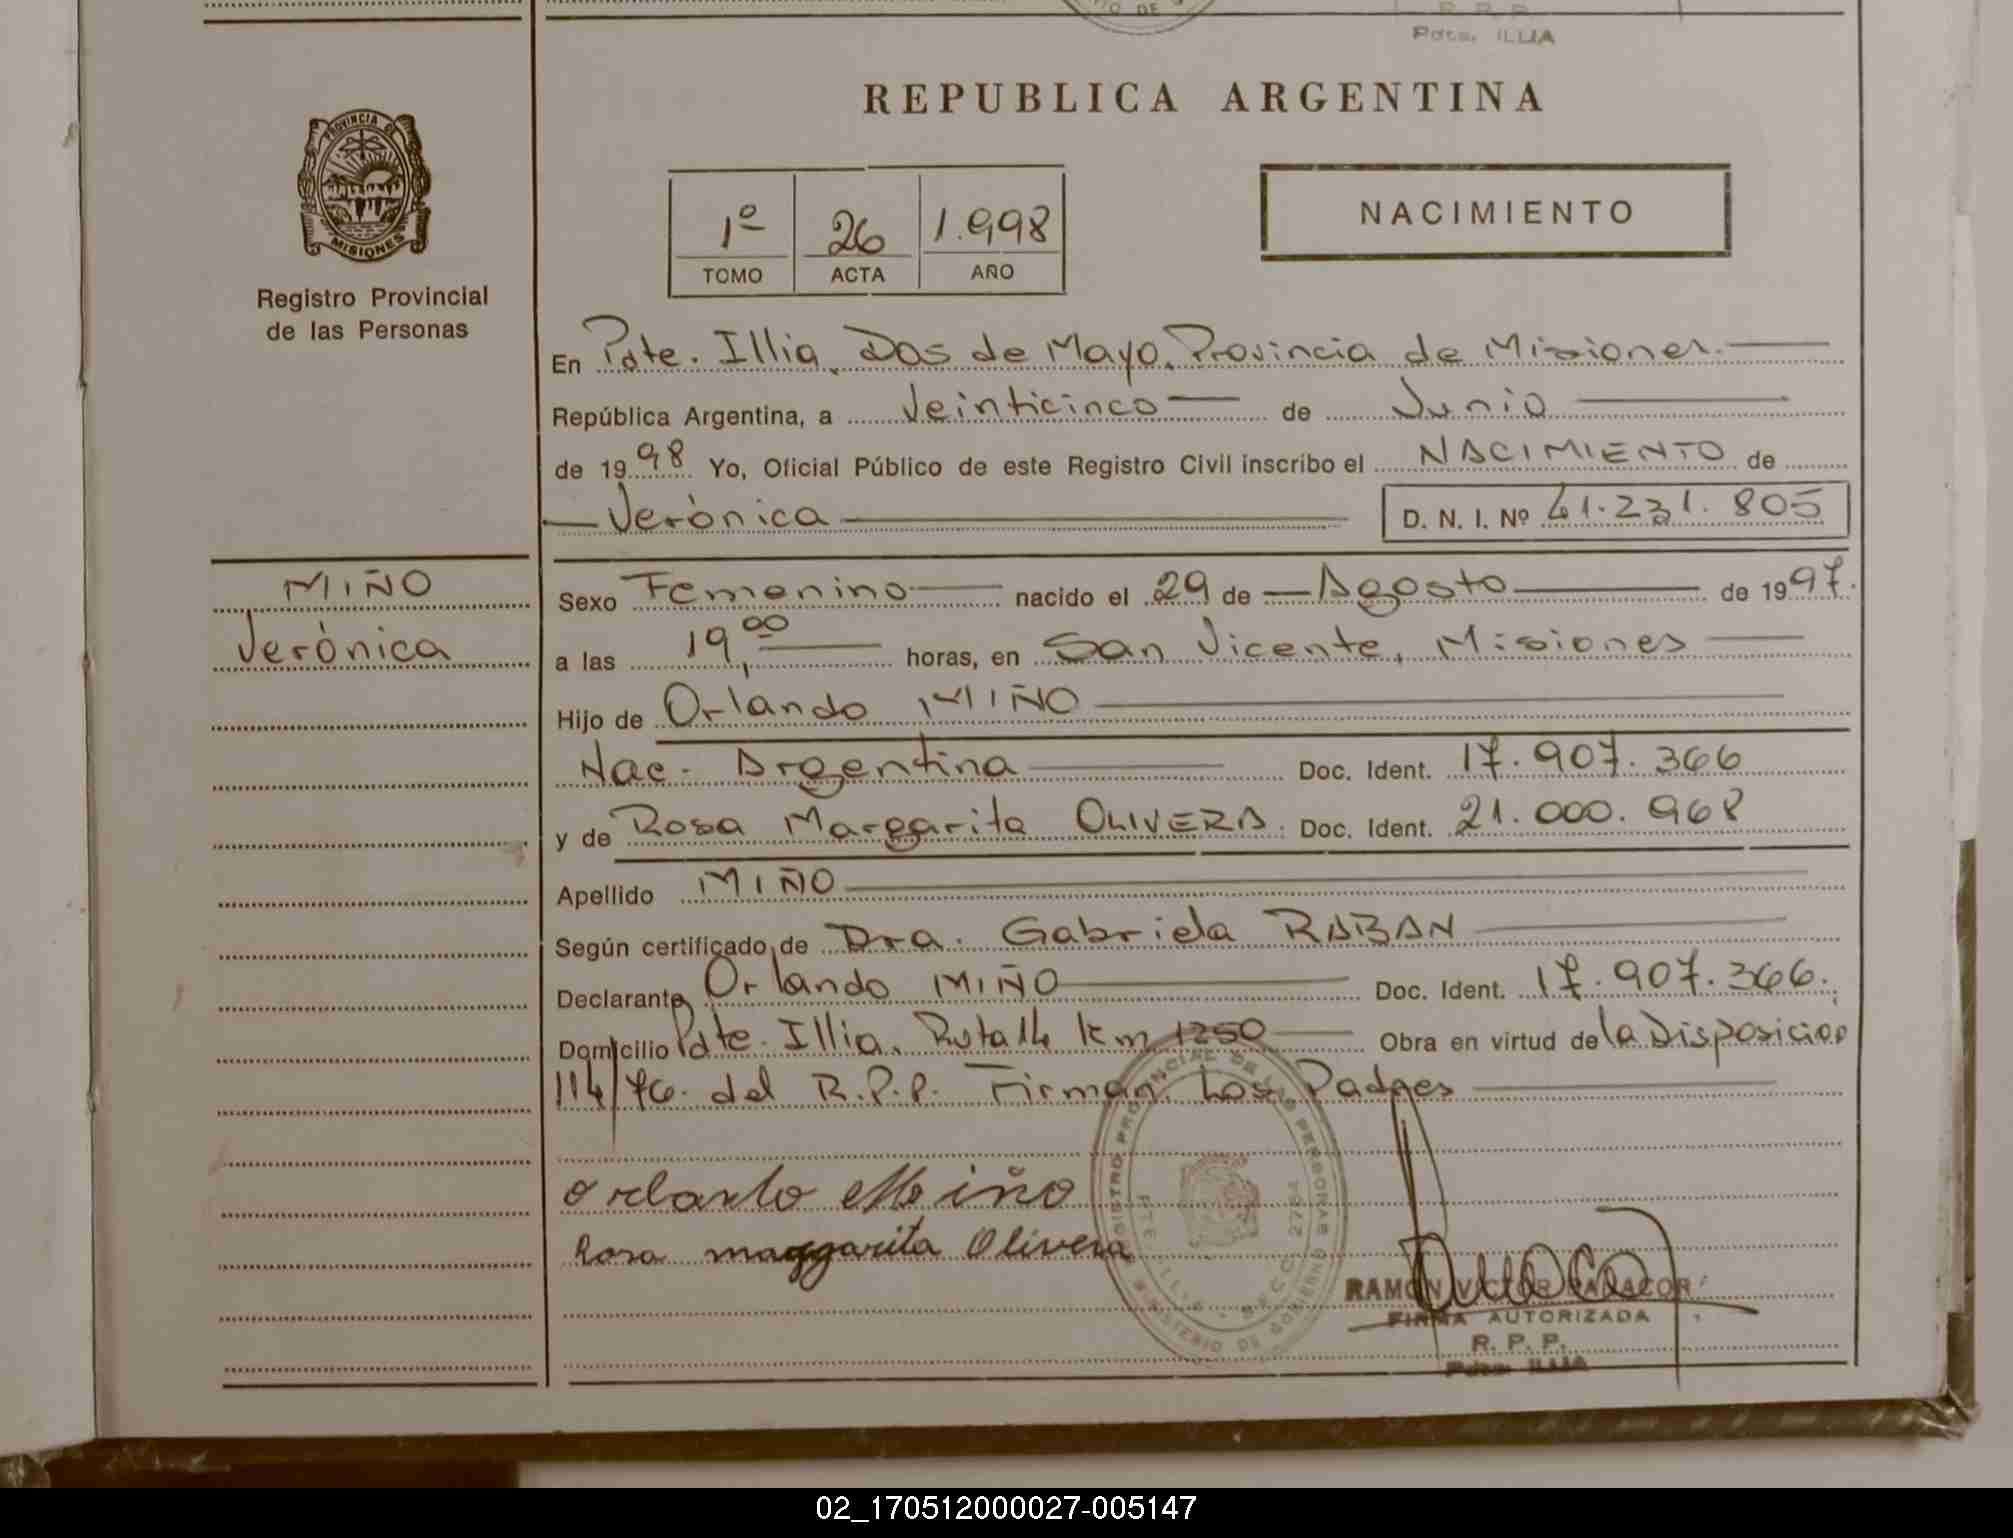 Pdte. ILLIA
REPUBLICA ARGENTINA
PROVINCIA DE
MISIONES
Registro Provincial
de las Personas
1º 26 1.998
TOMO ACTA AÑO
NACIMIENTO
En Pdte. Illia, Dos de Mayo, Provincia de Misiones.
República Argentina, a Veinticinco de Junio
de 1998 Yo, Oficial Público de este Registro Civil inscribo el NACIMIENTO de
Verónica D. N. I. Nº 41.231.805
MIÑO
Verónica
Sexo Femenino nacido el 29 de Agosto de 1997.
a las 19,00 horas, en San Vicente, Misiones
Hijo de Orlando MIÑO
Nac. Argentina Doc. Ident. 17.907.366
y de Rosa Margarita OLIVERA. Doc. Ident. 21.000.968
Apellido MIÑO
Según certificado de Dra. Gabriela RABAN
Declarante Orlando MIÑO Doc. Ident. 17.907.366.
Domicilio Pdte. Illia, Ruta 14 km 1250 Obra en virtud de la Disposicion
114/76. del R.P.P. Firman: Los Padres
Orlando Miño
Rosa margarita Olivera
REGISTRO PROVINCIAL DE LAS PERSONAS
MINISTERIO DE GOBIERNO
PTE ILLIA
RAMON VICTOR
FIRMA AUTORIZADA
R. P. P.
Pdte. ILLIA
02_170512000027-005147